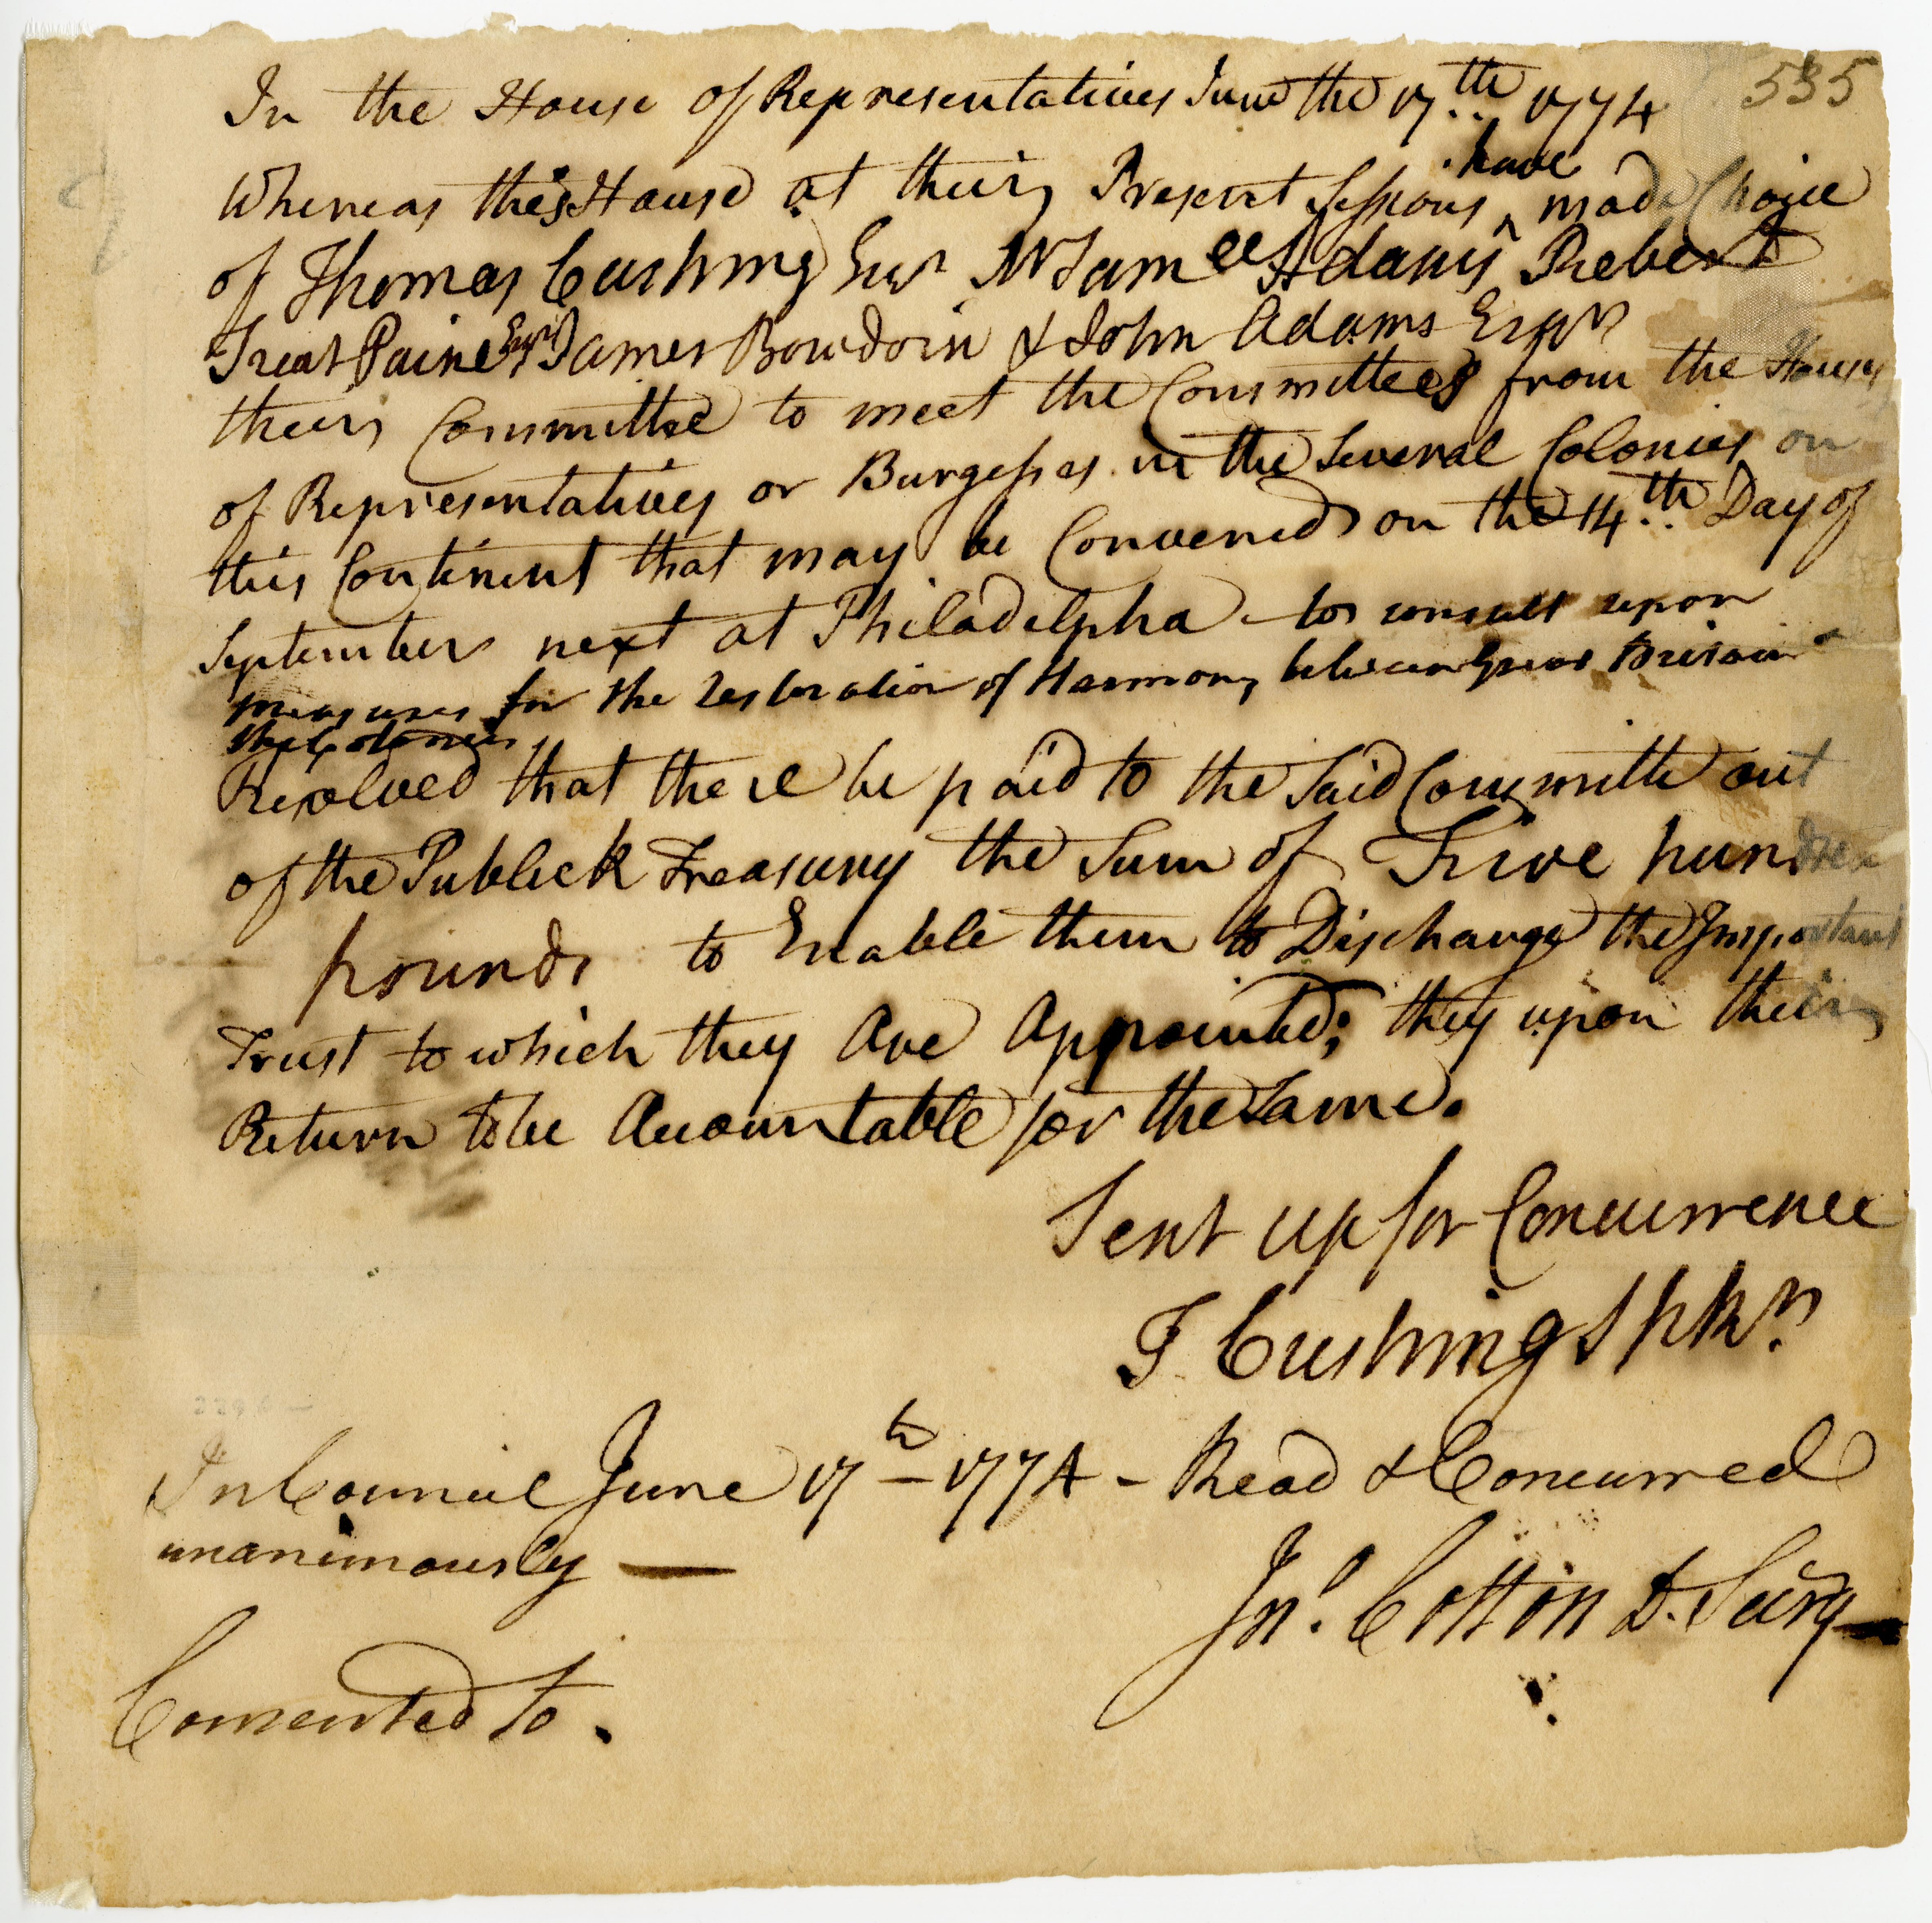 535
In the House of Representatives June the 17.th 1774
Whereas this House at their Present Sessions have made Choice
of Thomas Cushing Esqr Mr Samll Adams Robert
Treat Paine Esqr James Bowdoin & John Adams Esqrs
their Committee to meet the Committees from the Houses
of Representatives or Burgesses in the Several Colonies on
this Continent that may be Convened on the 14.th Day of
September next at Philadelpha to consult upon
measures for the restoration of Harmony between Great Britain &
the Colonies
Resolved that there be paid to the Said Committe out
of the Publick Treasury the Sum of Five hundred
pounds to Enable them to Discharge the Important
Trust to which they are appointed; they upon their
Return to be Accountable for the Same.
Sent up for Concurrence
T Cushing Spkr.
In Council June 17th 1774 - Read & Concurred
unanimously —
Jno. Cotton D. Secry
Consented to.